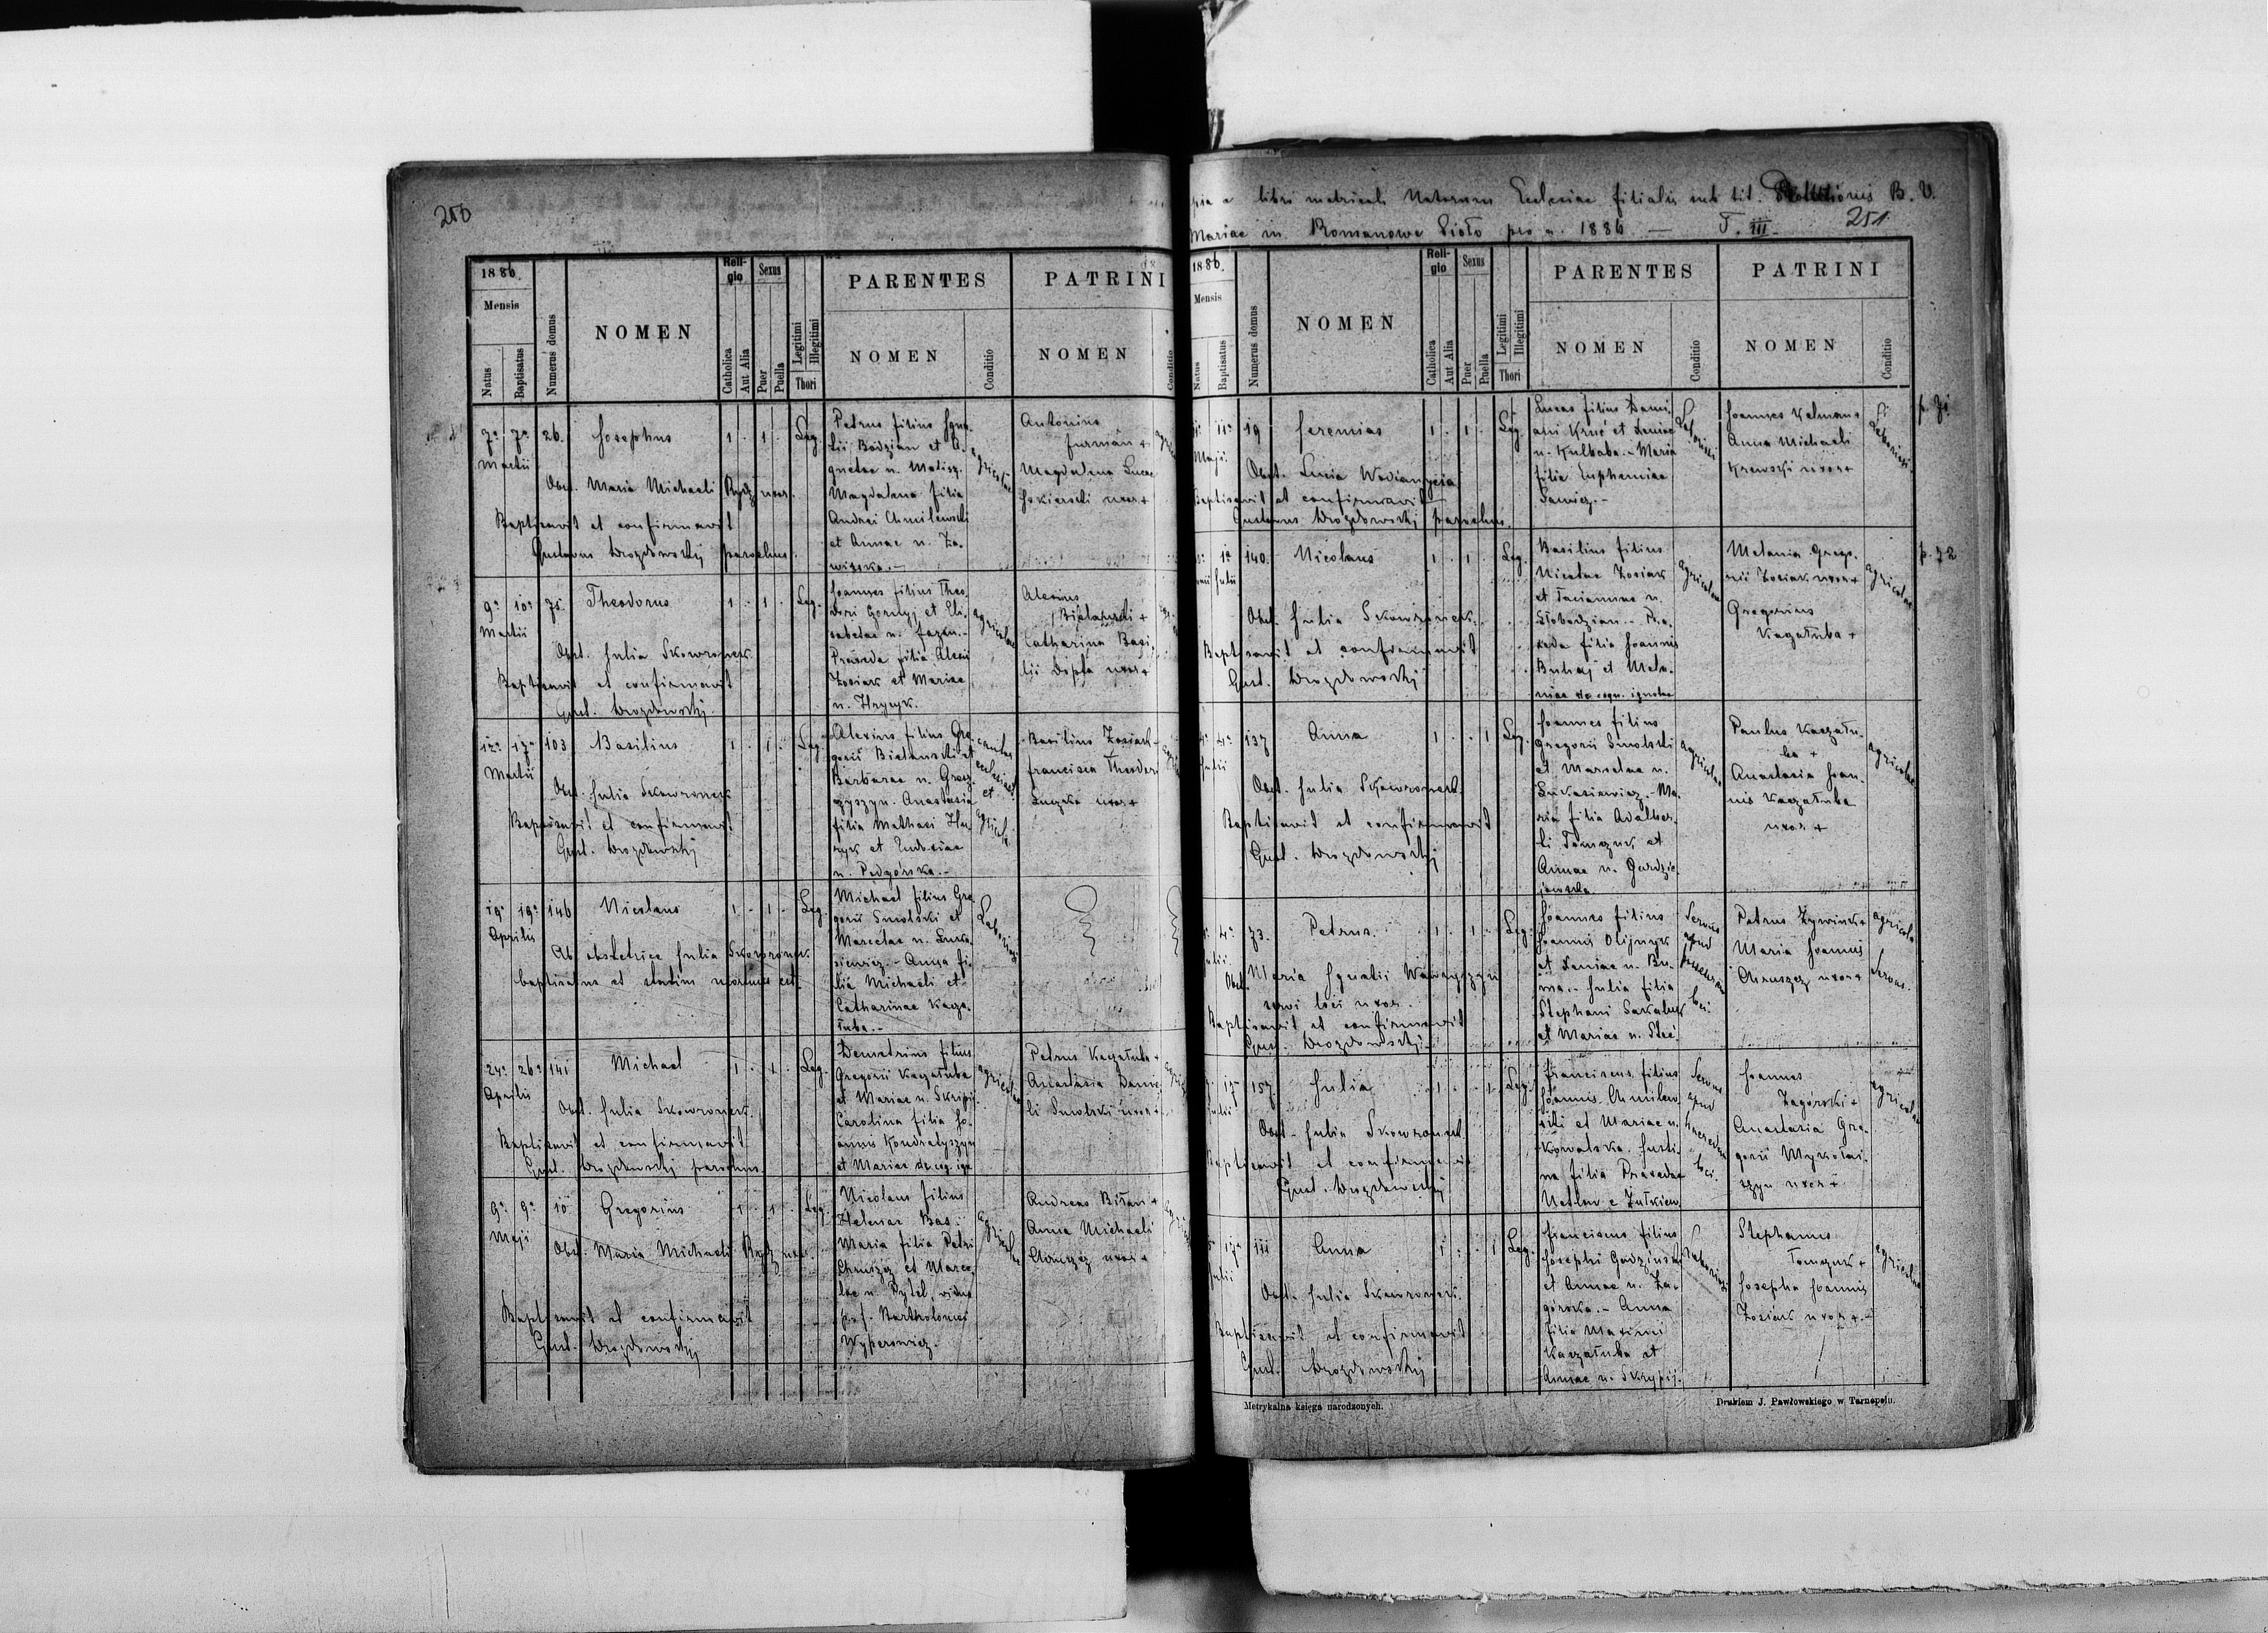 250
1886.
Mensis
Natus
Baptisatus
Numerus domus
NOMEN
Reli-
gio
Catholica
Aut Alia
Sexus
Puer
Puella
Legitimi
Illegitimi
Thori
PARENTES
NOMEN
Conditio
PATRINI
NOMEN
Conditio
7a 7a 26. Josephus 1 . 1 . Leg.
Martii
Obst. Maria Michaeli Rydz uxor.
Baptisavit et confirmavit
Gustavus Drozdowskij parochus.
Petrus filius Igna-
tii Bodzian et A-
gnetae n. Malisz.
Magdalena filia
Andrei Chmilewski
et Annae n. Za-
wiska.-
agricolae
Antonius
Furman +
Magdalena Lucae
uxor +
9a 10a 75. Theodorus 1 . 1 . Leg.
Martii
Obst. Julia Skowronek
Baptisavit et confirmavit
Gust. Drozdowskij.
Joannes filius Theo-
dori Gornyj et Eli-
sabetae n.
Praxeda filia Alexii
Zosiak et Mariae
n. Hrycyk.
agricolae
Alexius
Bielawski +
Catharina Basi-
lii Dopta uxor +
12a 17a 103 Basilius 1 . 1 . Leg.
Martii
Obst. Julia Skowronek
Baptisavit et confirmavit
Gust. Drozdowskij
Alexius filius Gre-
gorii Bielawski et
Barbarae n.
Anastasia
filia Mathaei
et Eudociae
n. Podgórska.-
cantor
eccles.
et
agricola
Basilius Zosiak
Francisca Theodori
uxor +
19a 19a 146 Nicolaus 1 . 1 . Leg.
Aprilis
Ab obstetrice Julia Skowronek
baptisatus et statim mortuus est.
Michael filius Gre-
gorii Smolski et
Marcelae n. Luka-
siewicz.- Anna fi-
lia Michaeli et
Catharinae Kacza-
łuba.-
Laboriosi
24a 26a 141 Michael 1 . 1 . Leg.
Aprilis
Obst. Julia Skowronek.
Baptisavit et confirmavit
Gust. Drozdowskij parochus.
Demetrius filius
Gregorii Kaczałuba
et Mariae n. Skripij.
Carolina filia Jo-
annis Kondratyszyn
et Mariae de cog. ign.
agricolae
Petrus Kaczałuba +
Anastasia Dani-
li Smolski uxor +
9a 9a 10 Gregorius 1 . 1 . Leg.
Maji
Obst. Maria Michaeli Rydz uxor.
Baptisavit et confirmavit
Gust. Drozdowskij
Nicolaus filius
Helenae Bas.
Maria filia Petri
Chruszcz et Marce-
lae n. Pytel, vidua
p. f. Bartholomei
Wyperowicz.
agricolae
Andreas Bilan +
Anna Michaeli
Chruszcz uxor +
libri metricali Natorum Ecclesiae filialis sub tit. B. V.
Mariae in Romanowe Sioło pro a. 1886 — T. III.
251
1886.
Mensis
Natus
Baptisatus
Numerus domus
NOMEN
Reli-
gio
Catholica
Aut Alia
Sexus
Puer
Puella
Legitimi
Illegitimi
Thori
PARENTES
NOMEN
Conditio
PATRINI
NOMEN
Conditio
11a 19 Jeremias 1 . 1 . Leg.
Maji
Obst. Lucia Wodianycia
Baptisavit et confirmavit
Gustavus Drozdowskij parochus.
Lucas filius Dami-
ani Kruć et Xeniae
n. Kulbaba.- Maria
filia Euphemiae
Sawicz.-
Laboriosi
Joannes Kelman +
Anna Michaeli
Krawski uxor +
Laboriosi
p. 71
1a 140. Nicolaus 1 . 1 . Leg.
Julii
Obst. Julia Skowronek.
Baptisavit et confirmavit
Gust. Drozdowskij
Basilius filius
Nicolae Zosiak
et Tacianae n.
Słobodzian.- Pa-
filia Joannis
Buhaj et Mela-
niae de cogn. ignotae
agricolae
Melania Grego-
rii Zosiak uxor +
Gregorius
Kaczałuba +
agricolae
p. 72
4a 137 Anna 1 . . 1 Leg.
Julii
Obst. Julia Skowronek.
Baptisavit et confirmavit
Gust. Drozdowskij
Joannes filius
Gregorii Smolski
et Marcelae n.
Lukasiewicz.- Ma-
ria filia Adalber-
ti Tomczuk et
Annae n. Gurdzie-
jewska.
agricolae
Paulus Kaczału-
ba +
Anastasia Joan-
nis Kaczałuba
uxor +
agricolae
4a 73. Petrus. 1 . 1 . Leg.
Julii
Obst. Maria Ignatii Wawryszyn
servi loci uxor.
Baptisavit et confirmavit
Gust. Drozdowskij.
Joannes filius
Joannis Olijnyk
et Xeniae n. Bu-
Julia filia
Stephani Sakaluk
et Mariae n. Steć
Servus
apud
loci.
Petrus Zywinski +
Maria Joannis
Chruszcz uxor +
agricola
Servus.
17a 157. Julia 1 . . 1 Leg.
Julii
Obst. Julia Skowronek.
Baptisavit et confirmavit
Gust. Drozdowskij
Franciscus filius
Joannis Chmilew-
ski et Mariae n.
Kowalska. Justi-
na filia Praxedae
Servus
apud
loci.
Joannes
Zagórski +
Anastasia Gre-
gorii Mykołai-
szyn uxor +
agricolae
17a 111 Anna 1 . . 1 Leg.
Julii
Obst. Julia Skowronek.
Baptisavit et confirmavit
Gust. Drozdowskij
Franciscus filius
Josephi Gudziński
et Annae n. Za-
górska.- Anna
filia Maximi
Kaczałuba et
Annae n. Skrypij.
Laboriosi
Stephanus
Tomczuk +
Josepha Joannis
Zosiak uxor +
agricolae
Metrykalna księga narodzonych.
Drukiem J. Pawłowskiego w Tarnopolu.